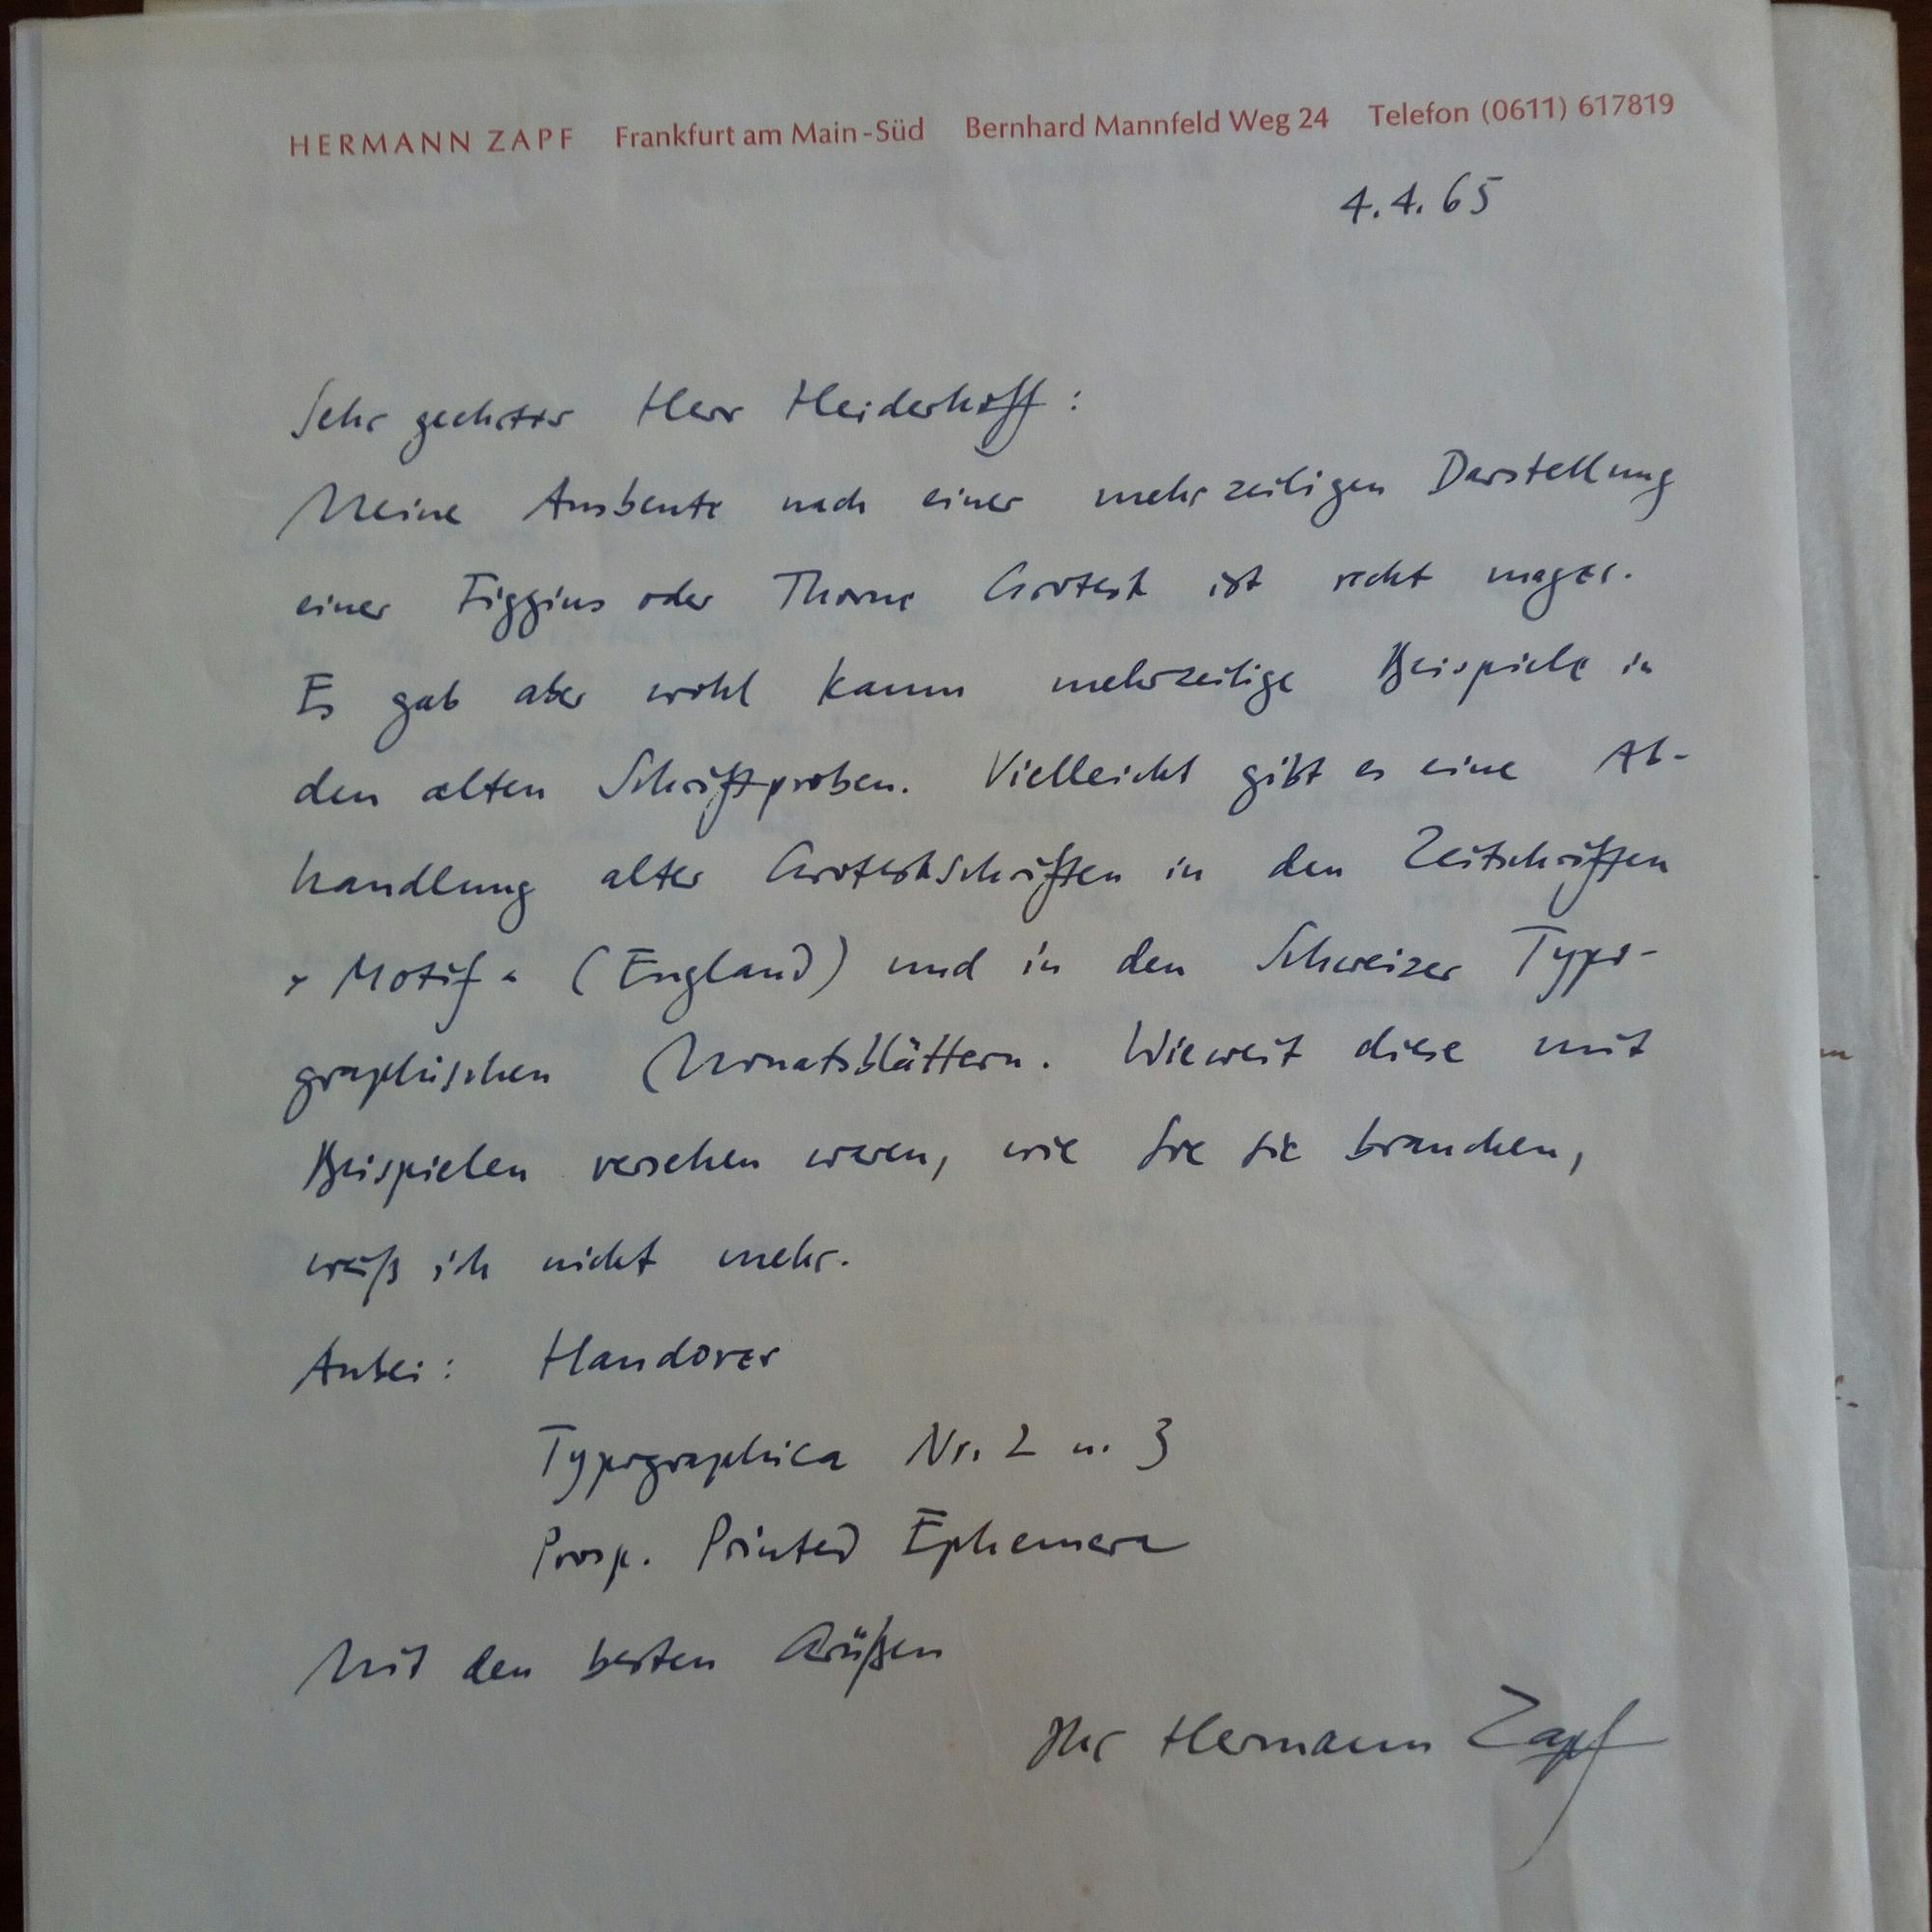 HERMANN ZAPF Frankfurt am Main-Süd Bernhard Mannfeld Weg 24 Telefon (0611) 617819
4.4.65
Sehr geehrter Herr Heiderhoff:
Meine Ausbeute nach einer mehrzeiligen Darstellung
einer Figgins oder Thorne Grotesk ist recht mager.
Es gab aber wohl kaum mehrzeilige Beispiele in
den alten Schriftproben. Vielleicht gibt es eine Ab-
handlung alter Groteskschriften in den Zeitschriften
»Motif« (England) und in den Schweizer Typo-
graphischen Monatsblättern. Wieweit diese mit
Beispielen versehen waren, wie Sie sie brauchen,
weiß ich nicht mehr.
Anbei: Handover
Typographica Nr. 2 u. 3
Prosp. Printed Ephemera
Mit den besten Grüßen
Ihr Hermann Zapf